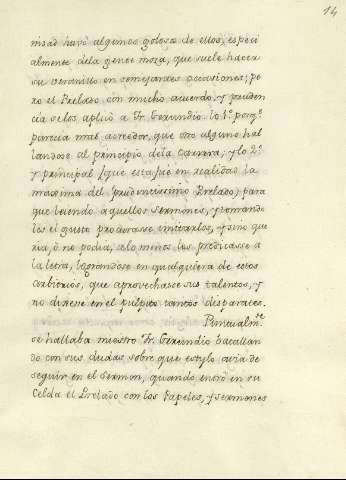 14
nidad havia algunos golosos de ellos, especi
almente dela gente moza, que suele hacer
su veranillo en semejantes occasiones; pe
ro el Prelado con mucho acuerdo, y pruden
cia selos aplicò a Fr. Gerundio. lo 1.º porq.e
parecia mas acreedor, que otro alguno hal
landose al principio dela Carrera; y lo 2.º
y principal (que esta fuè en realidad la
maxima del prudentissimo Prelado) para
que leiendo aquellos Sermones, y tomando
les el gusto procurasse imitarlos, y sino que
ria, ò no podia, alo menos los predicasse a
la letra, lograndose en qualquiera de estos
arbitrios, que aprovechasse sus talentos, y
no dixesse en el pulpito tantos disparates.
Puntualm.te
se hallaba nuestro Fr. Gerundio batallan
do con sus dudas sobre que estylo avia de
seguir en el Sermon, quando entrò en su
Celda el Prelado con los Papeles, y Sermones